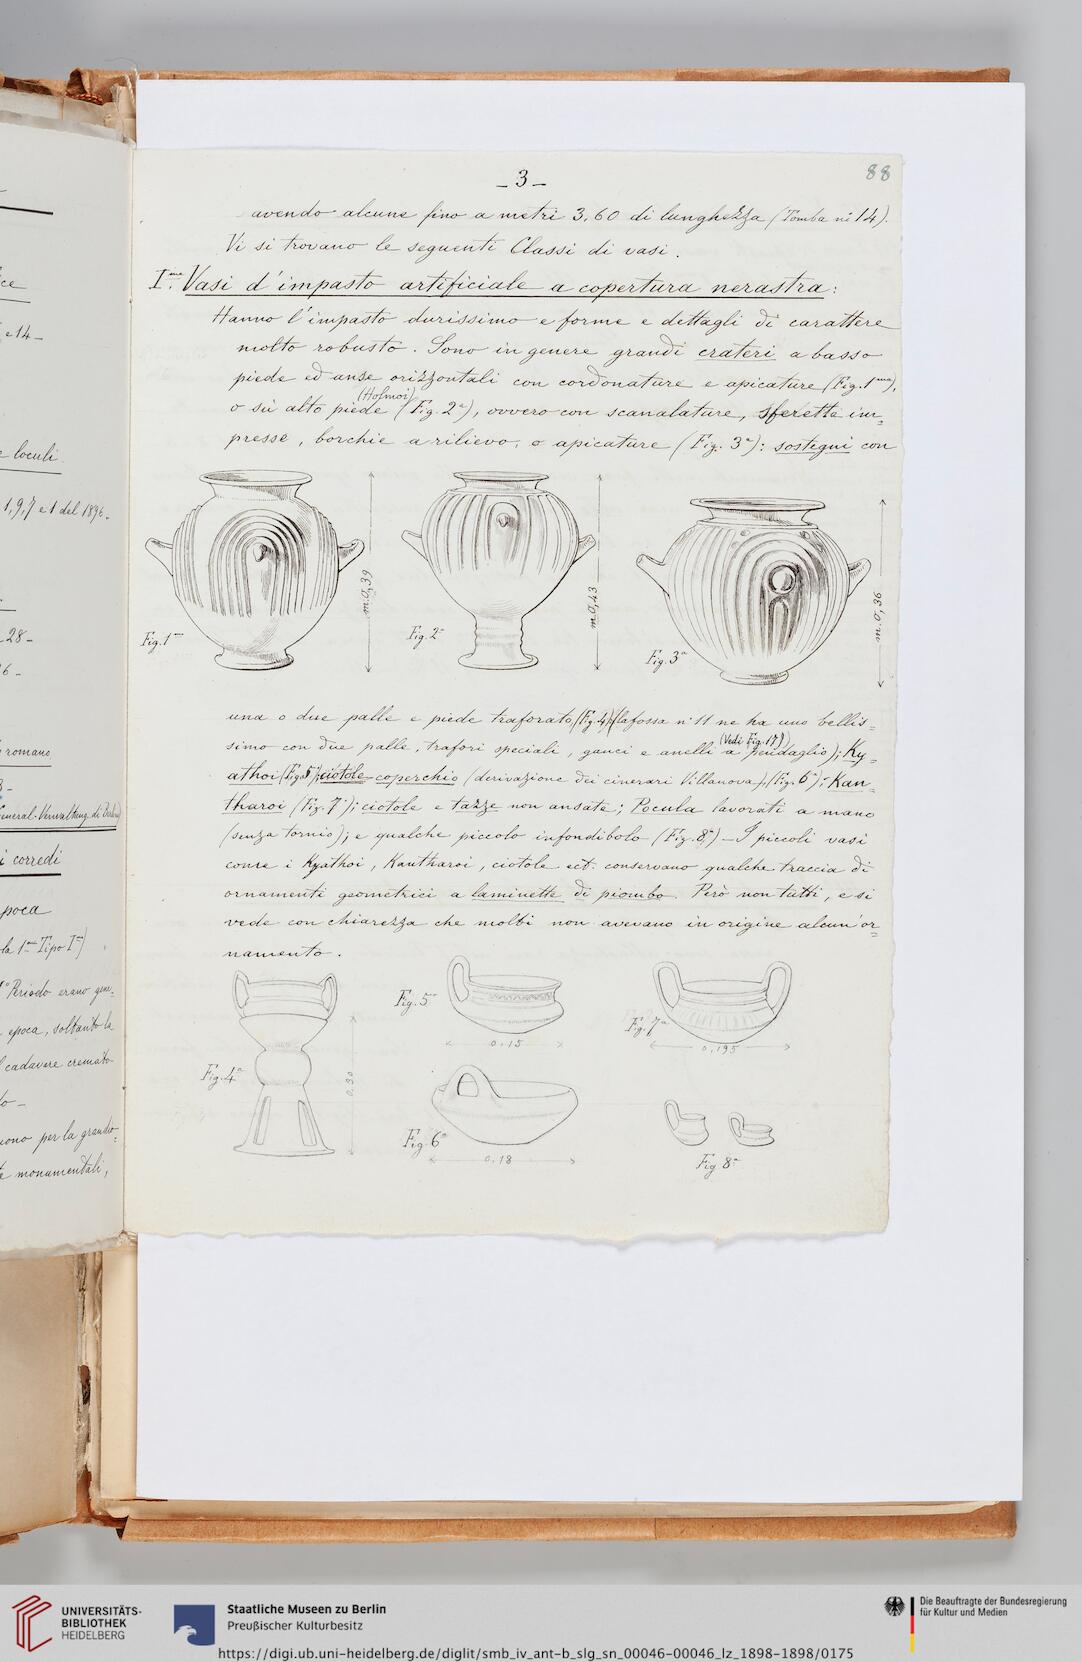 - 3 -
88
avendo alcune fino a metri 3,60 di lunghezza (Tomba n: 14).
Vi si trovano le seguenti Classi di vasi.
I.me Vasi d'impasto artificiale a copertura nerastra:
Hanno l'impasto durissimo e forme e dettagli di carattere
molto robusto. Sono in genere grandi crateri a basso
piede ed anse orizzontali con cordonature e apicature (Fig. 1ma),
(Holmoi)
o su alto piede (Fig. 2a), ovvero con scanalature, sferette im=
presse, borchie a rilievo, o apicature (Fig. 3a): sostegni con
Fig. 1ma
m. 0,39
Fig. 2a
m. 0,43
Fig. 3a
m. 0,36
una o due palle e piede traforato (Fig. 4a) (la fossa n: 11 ne ha uno bellis=
simo con due palle, trafori speciali, ganci e anelli a pendaglio); Ky=
(Vedi Fig. 17)
athoi (Fig. 5a); ciotole coperchio (derivazione dei cinerari Villanova), (Fig. 6a); Kan=
tharoi (Fig. 7a); ciotole e tazze non ansate; Pocula lavorati a mano
(senza tornio); e qualche piccolo infondibolo (Fig. 8a) - I piccoli vasi
come i Kyathoi, Kantharoi, ciotole ect. conservano qualche traccia di
ornamenti geometrici a laminette di piombo. Però non tutti, e si
vede con chiarezza che molti non avevano in origine alcun'or=
namento.
Fig. 4a
0.30
Fig. 5a
0.15
Fig. 6a
0.18
Fig. 7a
0.195
Fig 8a
ce
e 14 -
e loculi
1,9,7 e 1 del 1896 -
28 -
6 -
romano
General-Verwaltung di Berlino
i corredi
poca
la 1ma Tipo Ia)
1° Periodo erano gene=
epoca, soltanto la
cadavere cremato
to -
ono per la grandio=
e monumentali,
UNIVERSITÄTS-
BIBLIOTHEK
HEIDELBERG
Staatliche Museen zu Berlin
Preußischer Kulturbesitz
Die Beauftragte der Bundesregierung
für Kultur und Medien
https://digi.ub.uni-heidelberg.de/diglit/smb_iv_ant-b_slg_sn_00046-00046_lz_1898-1898/0175